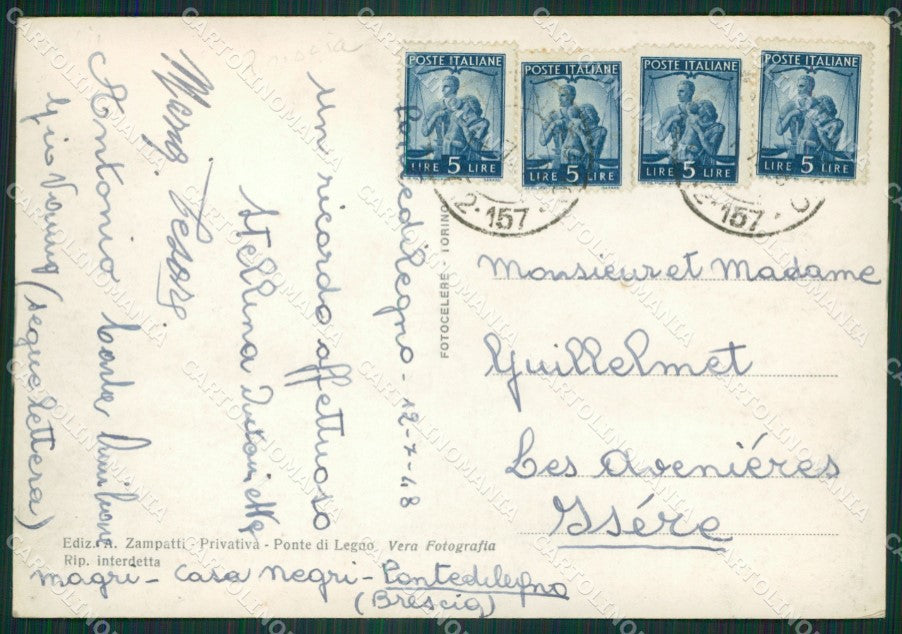 POSTE ITALIANE
LIRE 5 LIRE
POSTE ITALIANE
LIRE 5 LIRE
POSTE ITALIANE
LIRE 5 LIRE
POSTE ITALIANE
LIRE 5 LIRE
157
157
Pontedilegno - 12-7-48
un ricordo affettuoso
Stellina
Antonio
(segue lettera)
FOTOCELERE - TORINO
Monsieur et Madame
Guillelmet
Les Aveniéres
Isére
Ediz. A. Zampatti - Privativa - Ponte di Legno Vera Fotografia
Rip. interdetta
magri - Casa Negri - Pontedilegno
(Brescia)
CARTOLINOMANIA